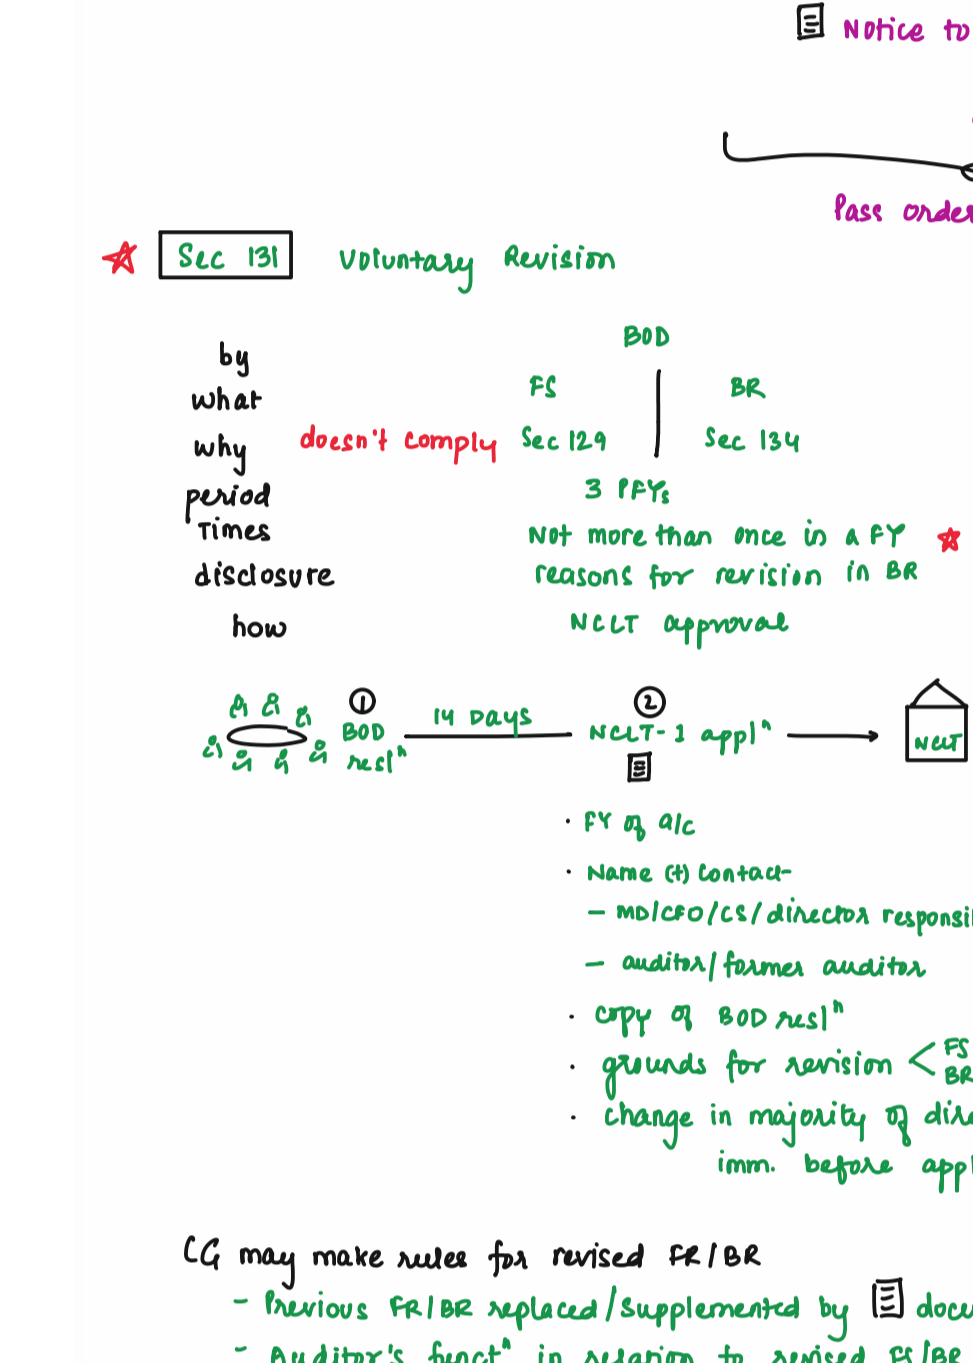 Notice to
Pass order
Sec 131 Voluntary Revision
by BOD
what FS BR
why doesn't comply Sec 129 Sec 134
period 3 PFYs
Times Not more than once in a FY
disclosure reasons for revision in BR
how NCLT approval
① BOD reslⁿ 14 DAYS ② NCLT-1 applⁿ NCLT
· FY of a/c
· Name (+) Contact-
- MD/CFO/CS/director
- auditor/former auditor
· copy of BOD reslⁿ
· grounds for revision < FS
BR
· change in majority of
imm. before
CG may make rules for revised FR/BR
- Previous FR/BR replaced/supplemented by
- Auditor's functⁿ in relation to revised FS/BR